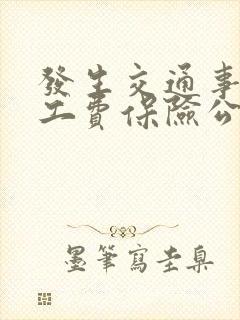 發生交通事
工費保險公
墨筆寫圭臬